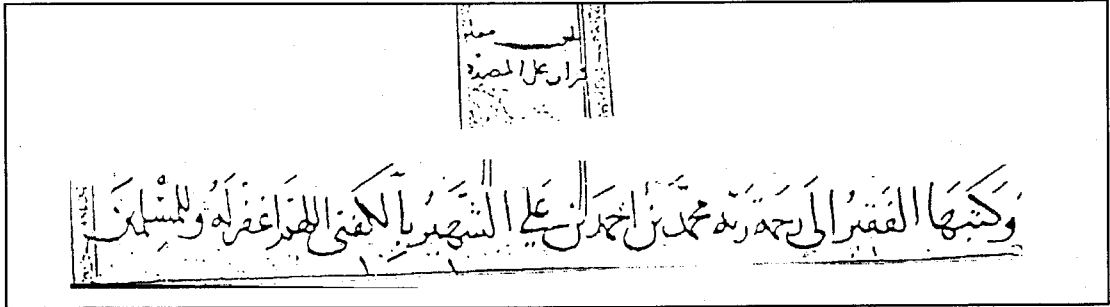 قرأت على المصنف
وَكَتَبَهَا الفَقِيرُ الَى رَحمَة رَبّه محمَّد بن احمَدَ بن عَلي الشَّهِيرُ بِالكفتى اللهُمَّ اغفِر لَهُ وَللمُسْلمِينَ